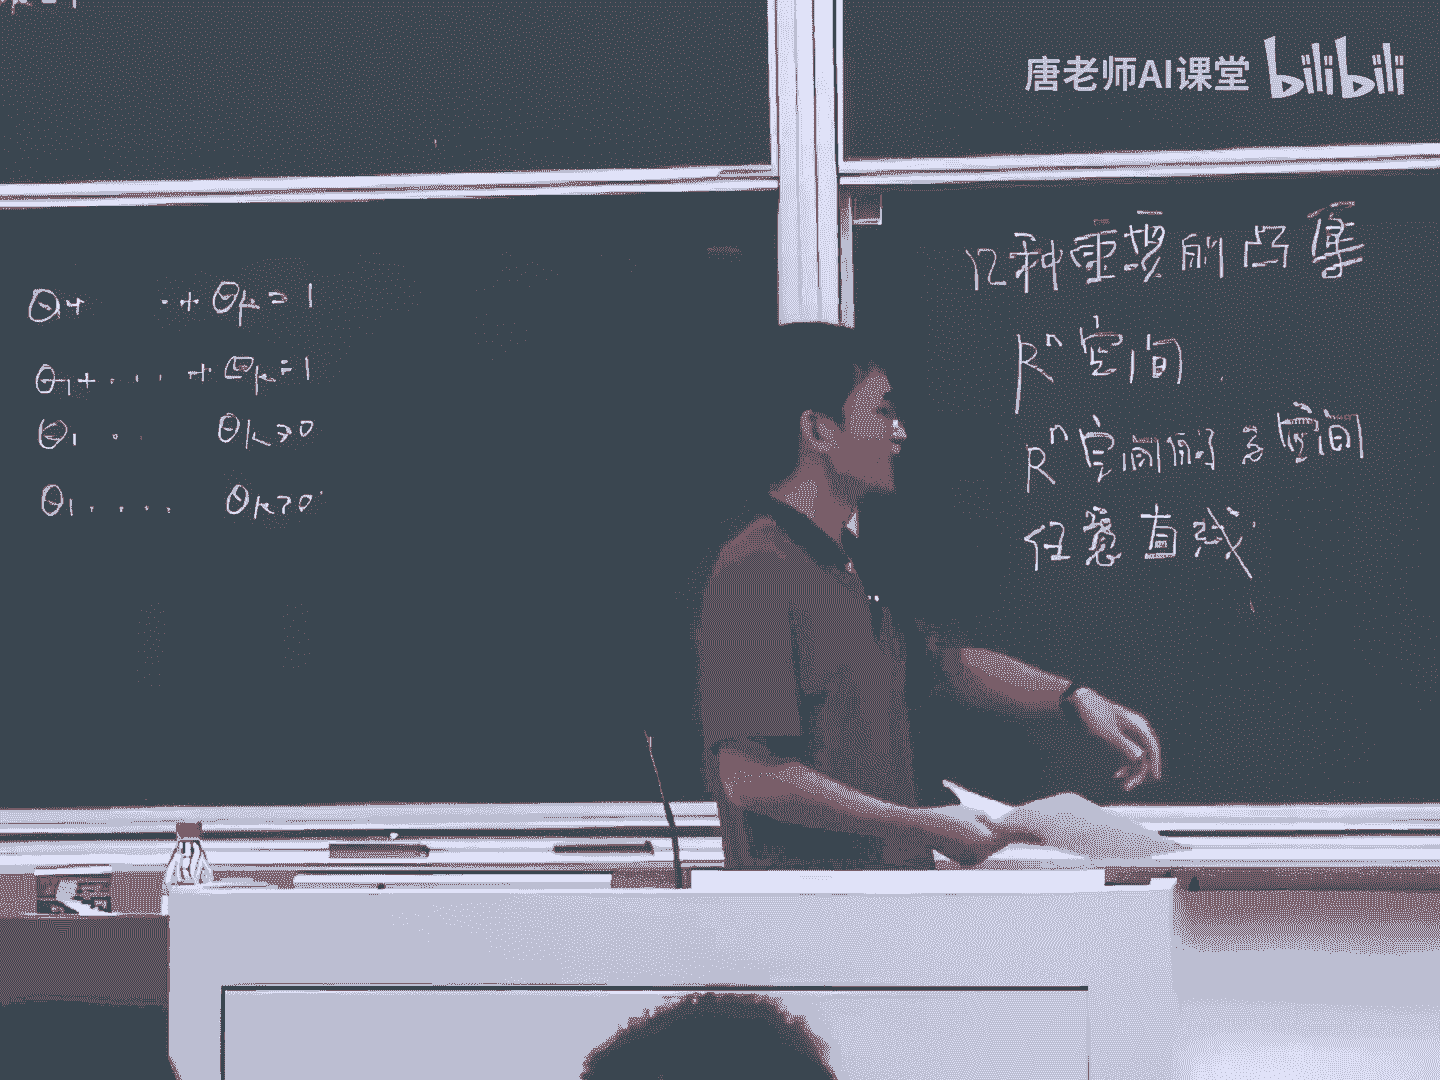 唐老师AI课堂 bilibili
θ1+ ··+ θk = 1
θ1+ ··· + θk = 1
θ1 ·· θk ≥ 0
θ1 ···· θk ≥ 0
几种重要的凸集
Rⁿ空间
Rⁿ空间的子空间
任意直线